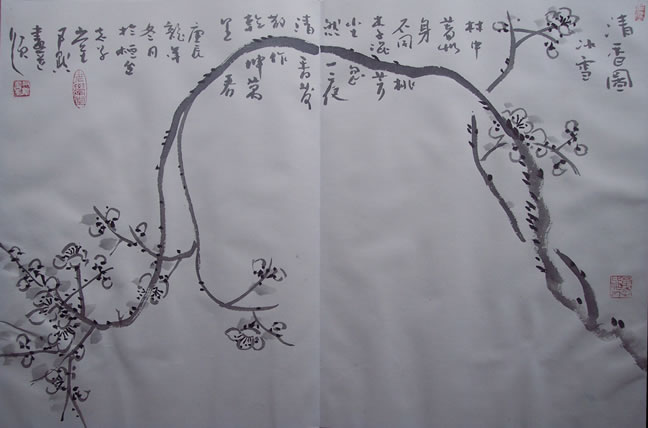 清香圖
冰雪
林中
著此
身
不同桃
李混芳
尘忽
然一夜
清香發
散作
乾坤萬
里春
庚辰
龍年
冬月